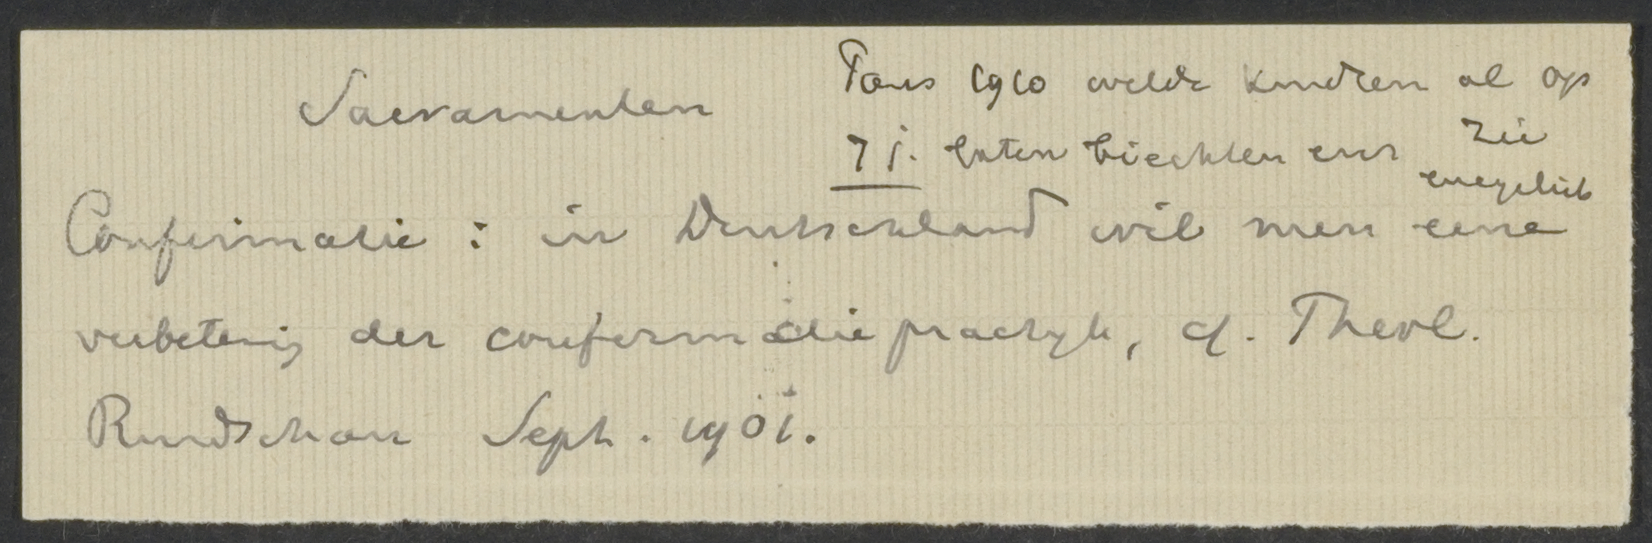 Sacramenten
Paus 1910 wilde kinderen al op
7 j. laten biechten enz zie
Confirmatie : in Deutschland wil men eene
verbetering der confirmatiepractyk, cf. Theol.
Rundschau Sept. 1901.